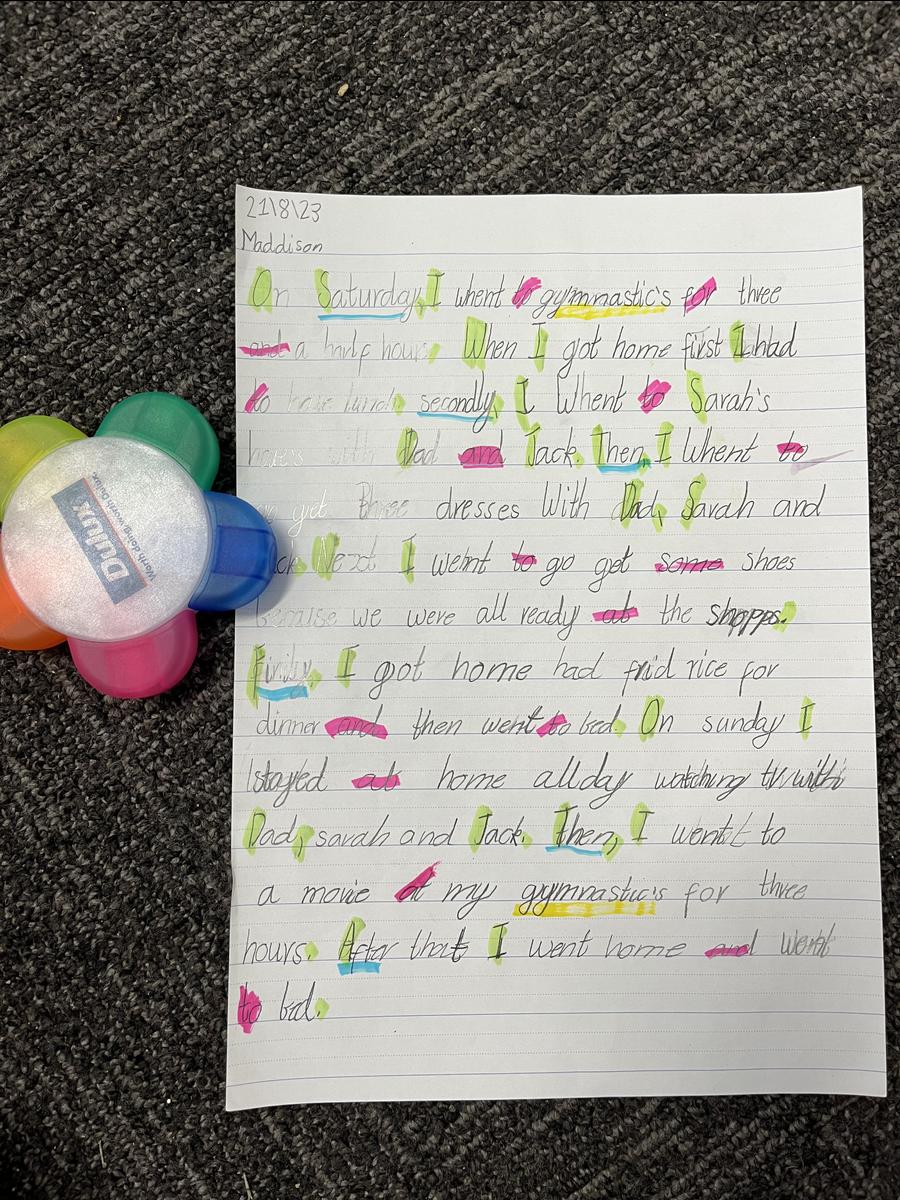 21\8\23
Maddison
On Saturday, I whent to gymnastic's for three
and a hhlf hours, When I got home first I had
to have lunch, secondly, I Whent to Sarah's
with Dad and Jack. Then, I Whent to
get three dresses With Dad, Sarah and
Next I went to go get some shoes
because we were all ready at the shopps.
Finily, I got home had frid rice for
dinner and then went to bed. On sunday I
stayed at home allday watching tv with
Dad, sarah and Jack. Then, I went to
a movie at my gymnastic's for three
hours. After that I went home and went
to bed.
Dulux
Worth doing, worth Dulux.